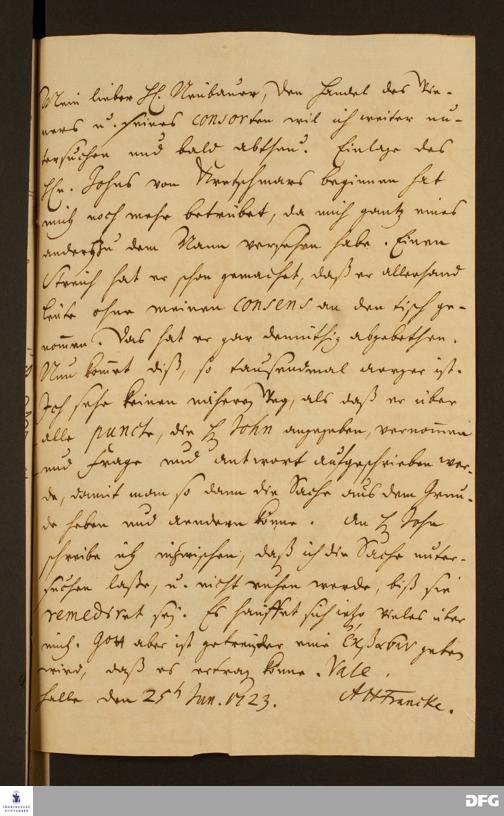 Mein lieber H. Neubauer, den Handel des Rie-
ners u. seines consorten wil ich weiter un-
tersuchen und bald abthun. Einlage des
Hn. Johns von Kretschmars beginnen hat
mich noch mehr betrübet, da mich gantz eines
anders zu dem Mann versehen habe. Einen
Streich hat er schon gemachet, daß er allerhand
leute ohne meinen consens an den tisch ge-
nommen. Das hat er gar demüthig abgebethen.
Nun kömmt diß, so tausendmal aerger ist.
Ich sehe keinen nähern Weg, als daß er über
alle puncte, die H John angegeben, vernommen
und Frage und antwort aufgeschrieben wer-
de, damit man so dann die Sache aus dem Grun-
de heben und aendern könne. An H John
schreibe ich inzwischen, daß ich die Sache unter-
suchen laße, u. nicht ruhen werde, biß sie
remediret sey. Es häuffet sich sehr vieles über
mich. Gott aber ist getreu, der eine ἔκβασιν geben
wird, daß es ertragen könne. Vale.
Halle den 25t Jun. 1723. AHFrancke.
FRANCKESCHE
STIFTUNGEN
DFG